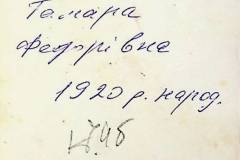 Тамара
Федорівна
1920 р. народ.